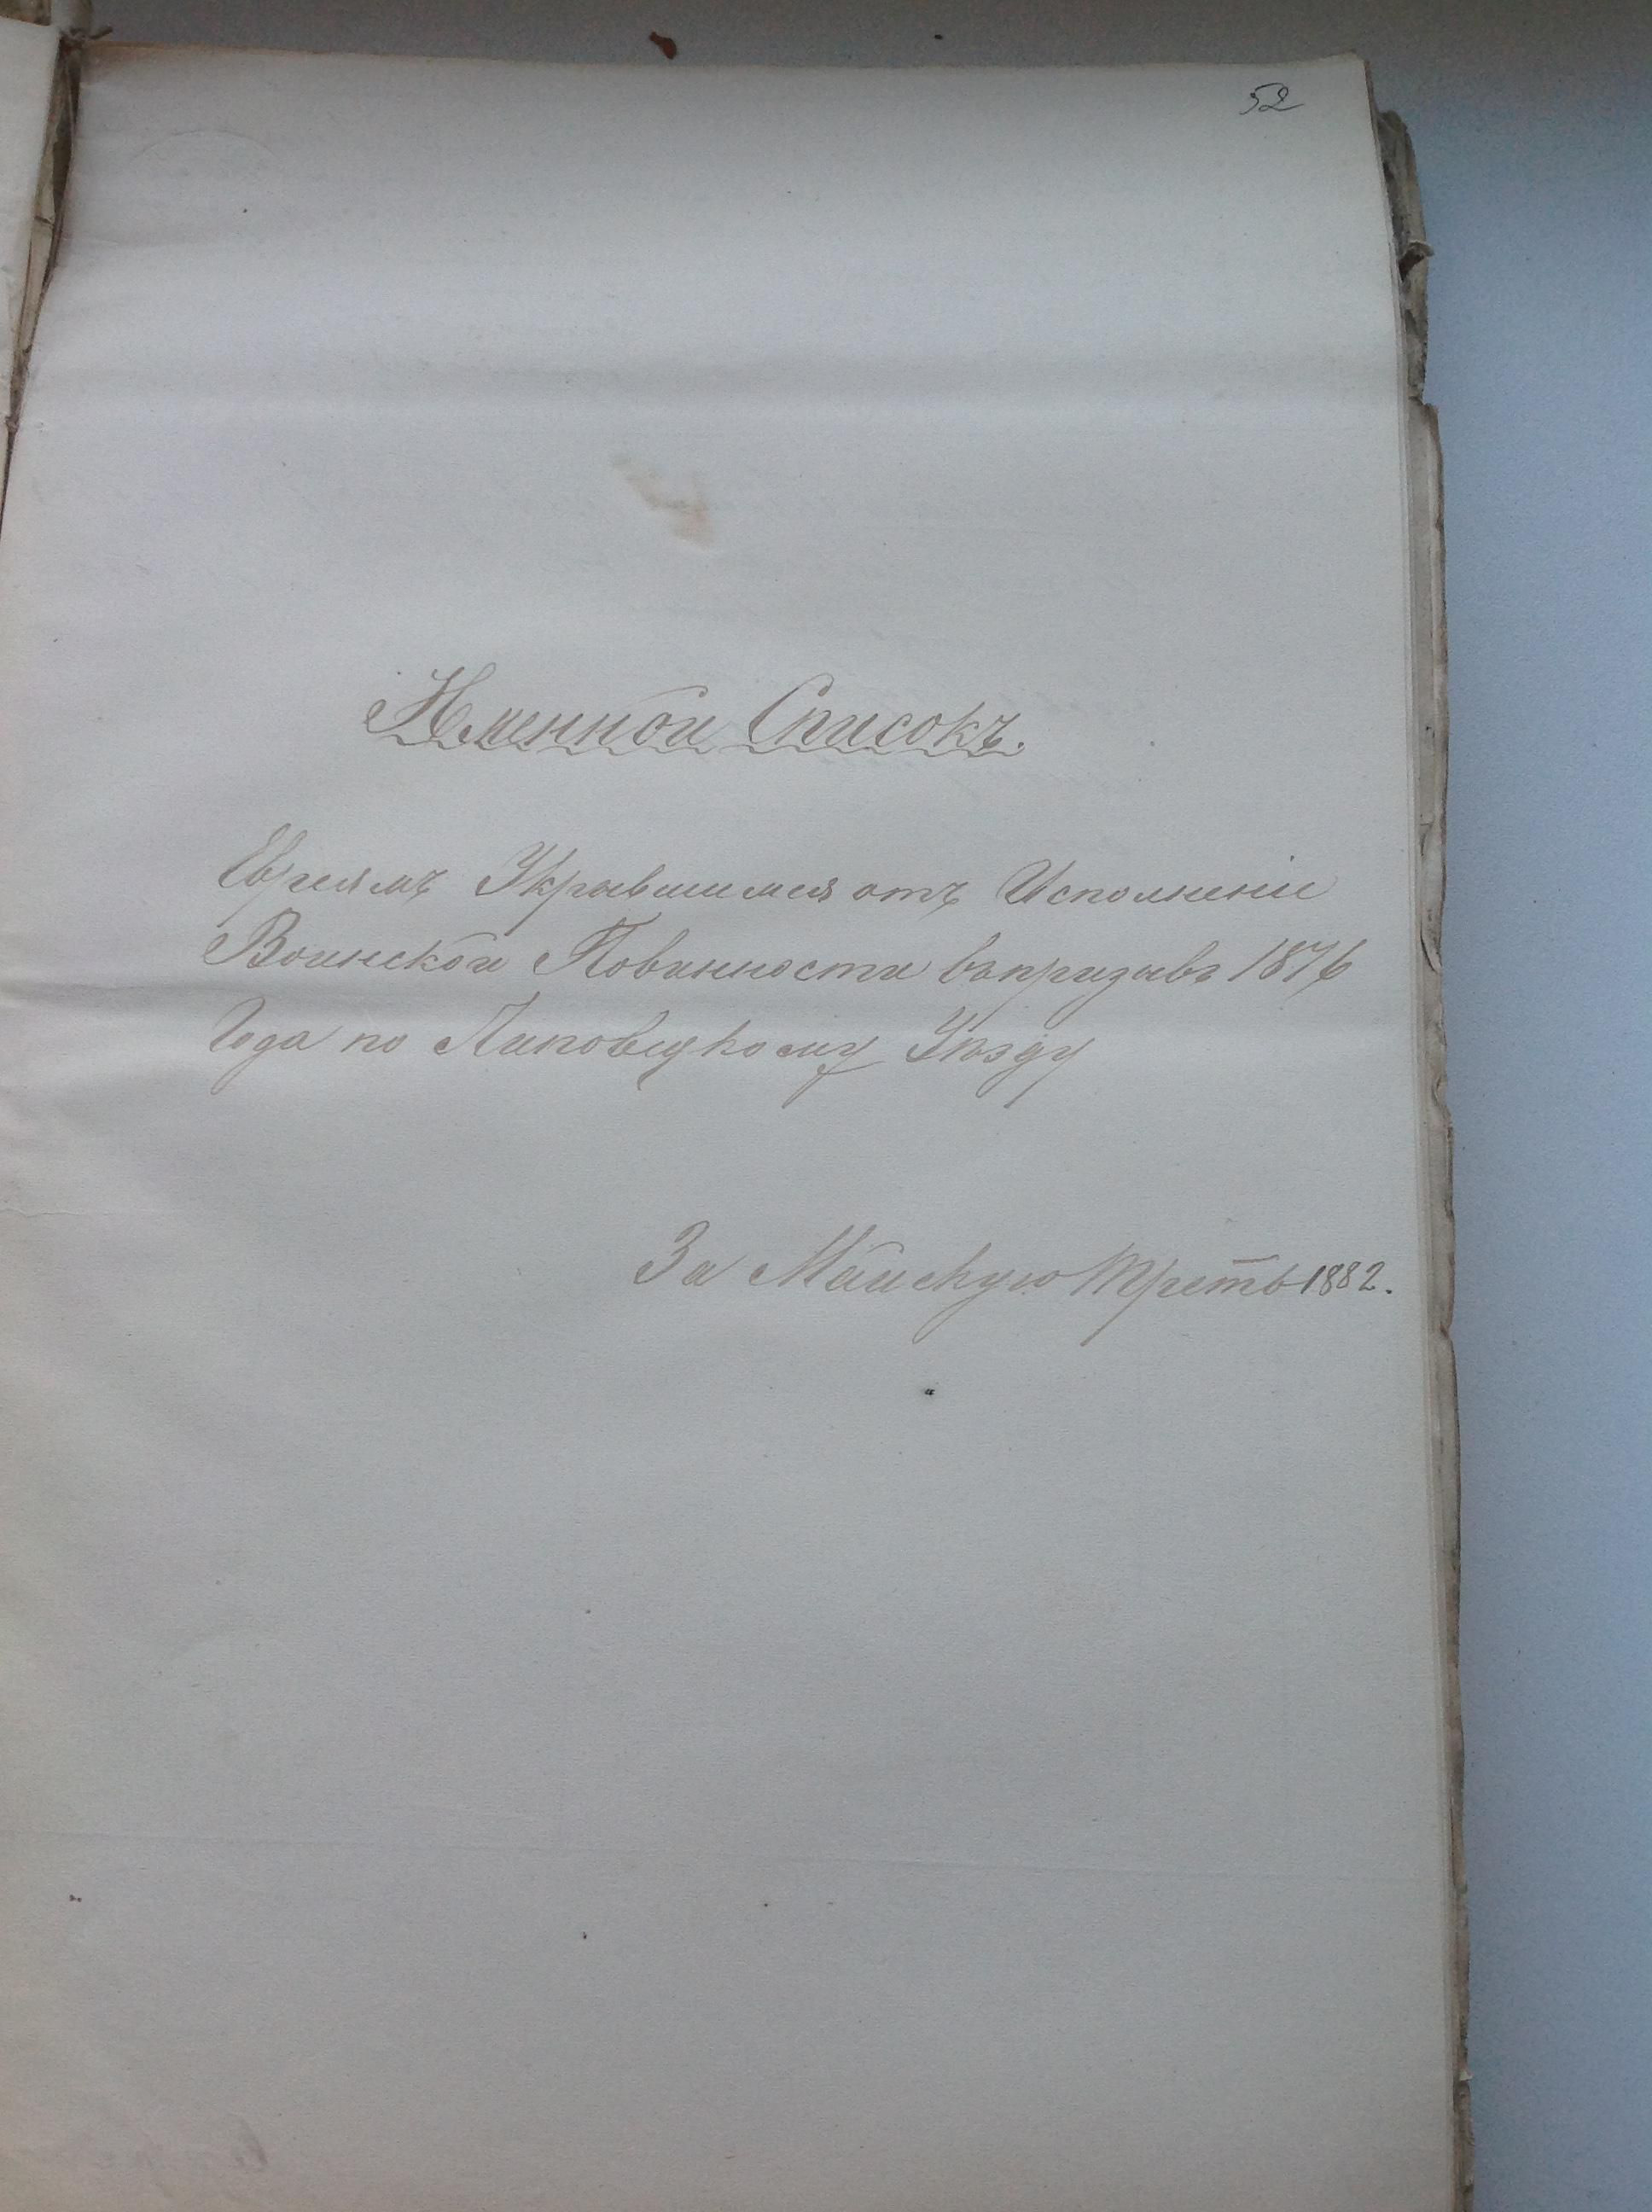 52
Именной Списокъ.
Евреямъ Укрывшимся отъ Исполненіе
Воинской Повинности въ призывъ 1876
Года по Липовецкому Уѣзду
За Майскую Треть 1882.